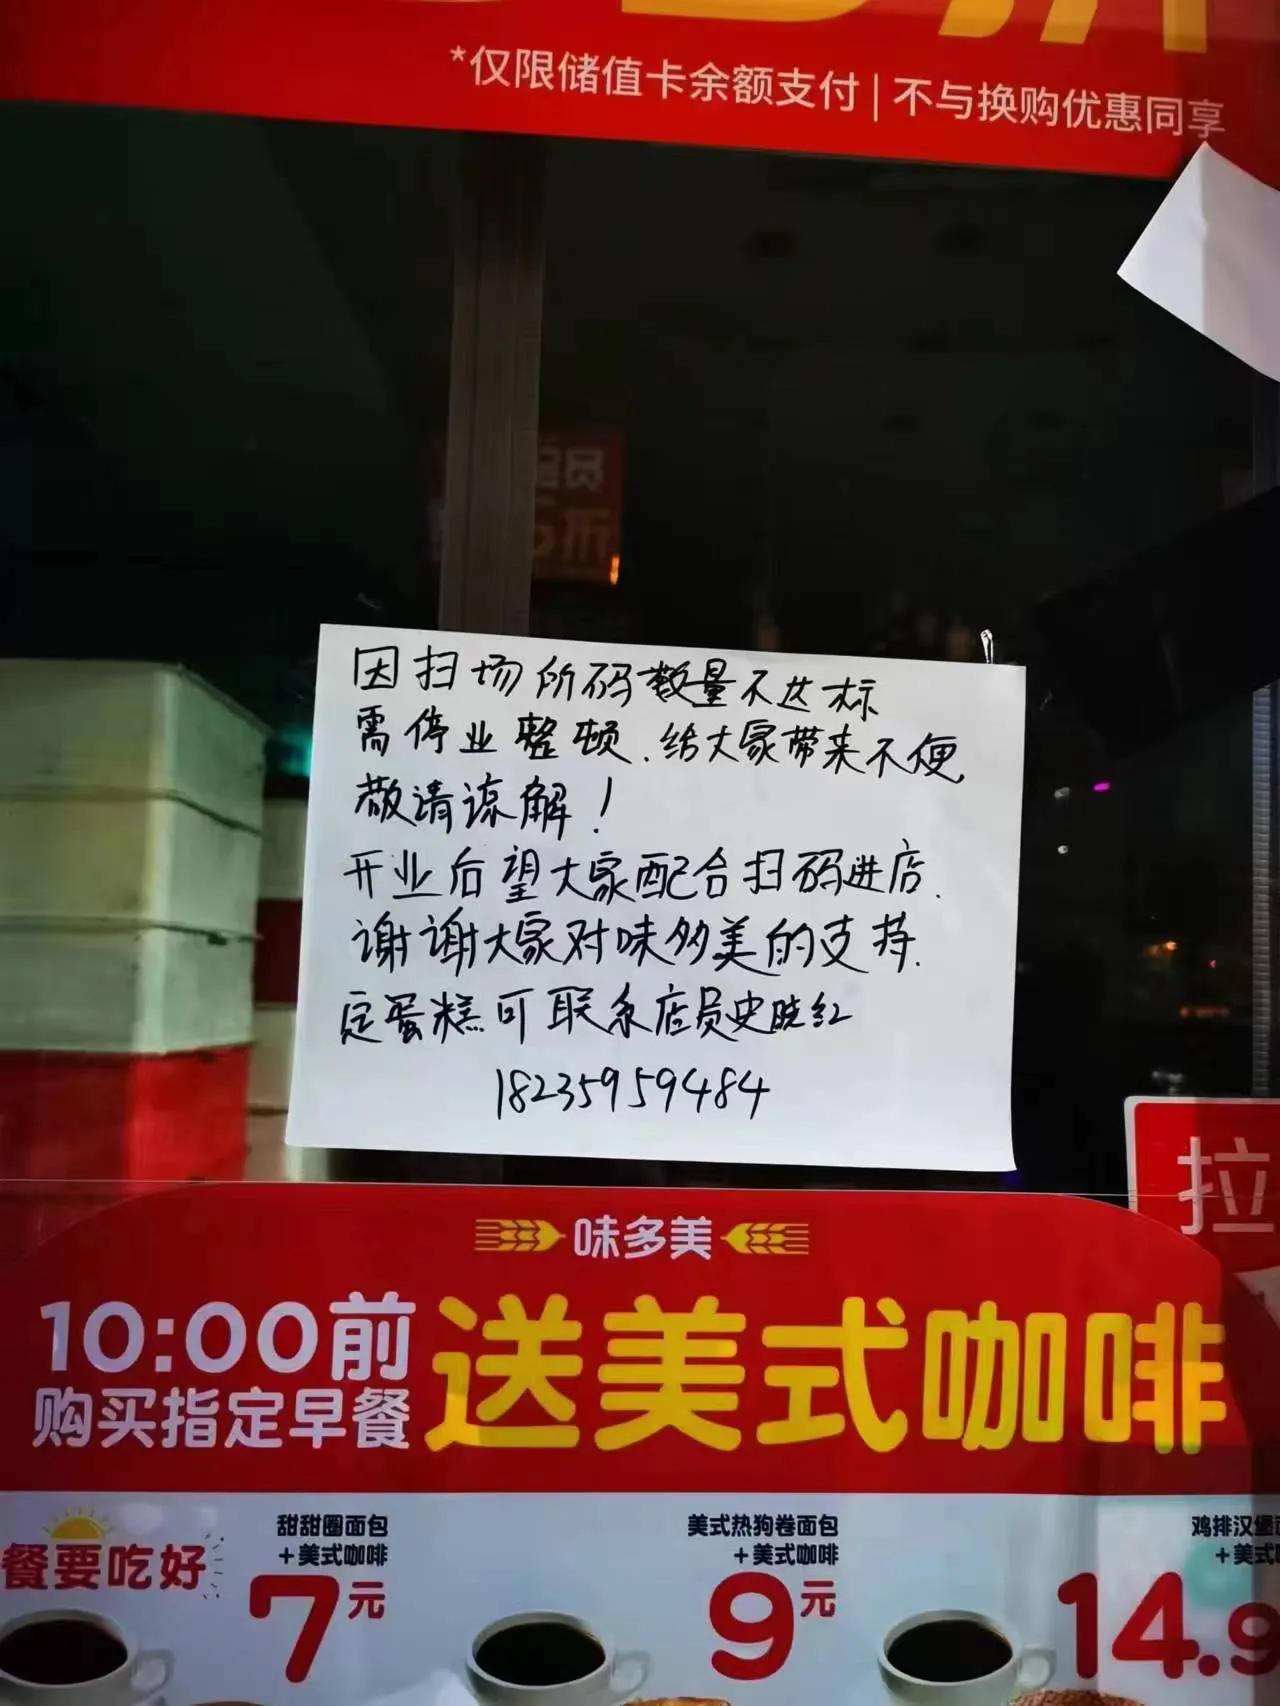 *仅限储值卡余额支付 | 不与换购优惠同享
因扫场所码数量不达标
需停业整顿.给大家带来不便
敬请谅解！
开业后望大家配合扫码进店.
谢谢大家对味多美的支持.
定蛋糕可联系店员史晓红
18235959484
拉
味多美
10:00前
购买指定早餐
送美式咖啡
餐要吃好
甜甜圈面包
+美式咖啡
7元
美式热狗卷面包
+美式咖啡
9元
鸡排汉堡
+美式
14.9